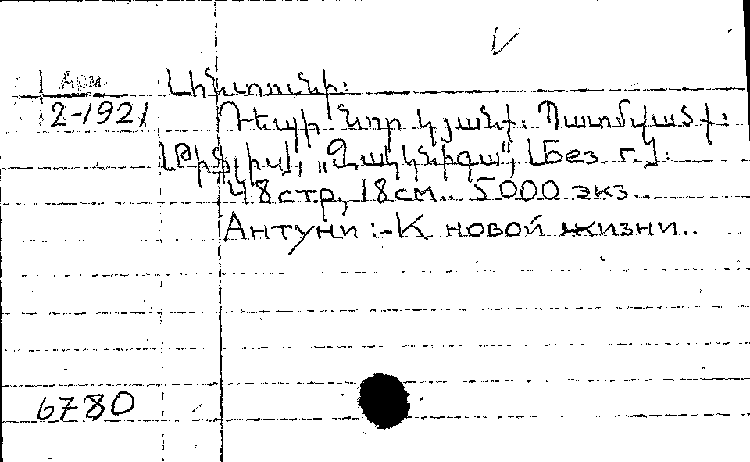 Арм.
2-1921
Դեպի նոր կյանք. Պատմվածք.
[Թիֆլիս], „Զակկնիգա", [Без г.].
48 стр, 18 см.. 5000 экз.
Антуни :- К новой жизни..
6780